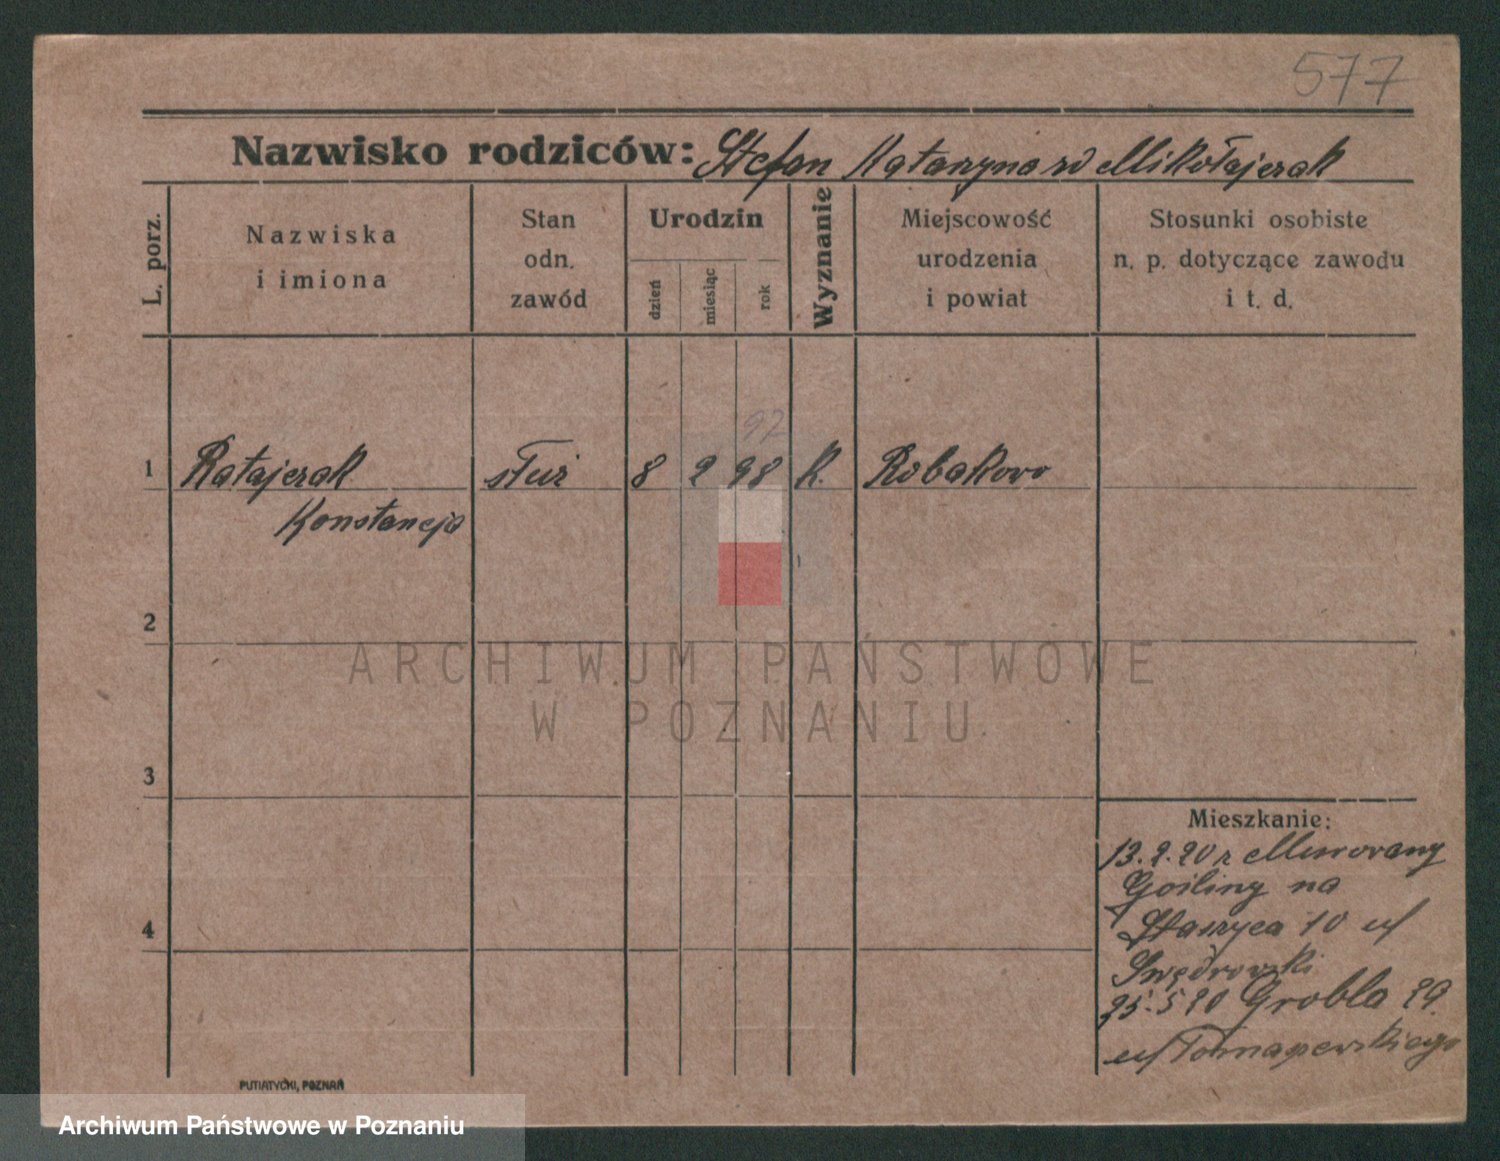 577
Nazwisko rodziców: Stefan Katarzyna zd Mikołajczak
L. porz.
Nazwiska
i imiona
Stan
odn.
zawód
Urodzin
dzień
miesiąc
rok
Wyznanie
Miejscowość
urodzenia
i powiat
Stosunki osobiste
n. p. dotyczące zawodu
i t. d.
97
1 Ratajczak służ 8 2 98 K. Robakowo
Konstancja
2
ARCHIWUM PAŃSTWOWE
W POZNANIU
3
Mieszkanie:
13.2.20 z Murowany
Gośliny na
4
Staszyca 10 u/
Swędrowski
25.5 20 Grobla 29.
u/
PUTIATYCKI, POZNAŃ
Archiwum Państwowe w Poznaniu